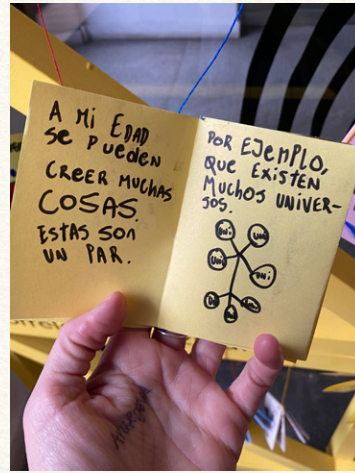 A MI EDAD
SE PUEDEN
CREER MUCHAS
COSAS.
ESTAS SON
UN PAR.
POR EJEMPLO,
QUE EXISTEN
MUCHOS UNIVER-
SOS.
UNI
UNI
UNI
UNI